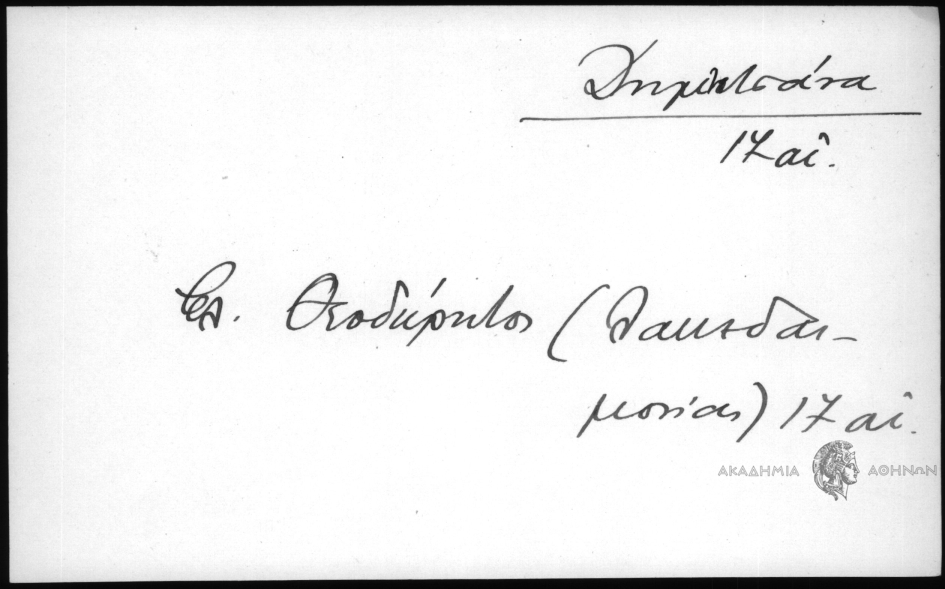 Δημητσάνα
17 αἰ.
Βλ. Θεοδώρητος (Λακεδαι-
μονίας) 17 αἰ.
ΑΚΑΔΗΜΙΑ ΑΘΗΝΩΝ